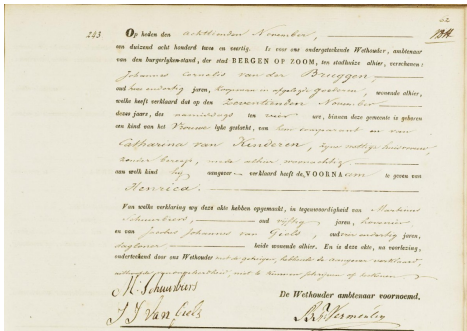 62
243
Op heden den achttienden November,
een duizend acht honderd twee en veertig. Is voor ons ondergeteekende Wethouder, ambtenaar
van den burgerlijken-stand, der stad BERGEN OP ZOOM, ten stadhuize alhier, verschenen:
Johannes Cornelis van der Bruggen
oud twee endertig jaren, Koopman in afgelegde goederen, wonende alhier,
welke heeft verklaard dat op den Zeventienden November
dezes jaars, des namiddags ten vier ure, binnen deze gemeente is geboren
een kind van het Vrouwelyke geslacht, van hem comparant en van
Catharina van Kinderen, zyne wettige huisvrouw,
zonder beroep, mede alhier woonachtig
aan welk kind hy aangever verklaard heeft de VOORNAam te geven van
Henrica
Van welke verklaring wy deze akte hebben opgemaakt, in tegenwoordigheid van Martinus
Schuurbiers, oud vyftig jaren, hovenier
en Jacobus Johannes van Giels, oud een endertig jaren,
daglooner beide wonende alhier. En is deze akte, na voorlezing,
onderteekend door ons Wethouder met de getuigen, hebbende de aangever verklaard,
niet te kunnen schryven of teekenen
M. Schuurbiers
De Wethouder ambtenaar voornoemd.
J J Van Giels
Vermeulen